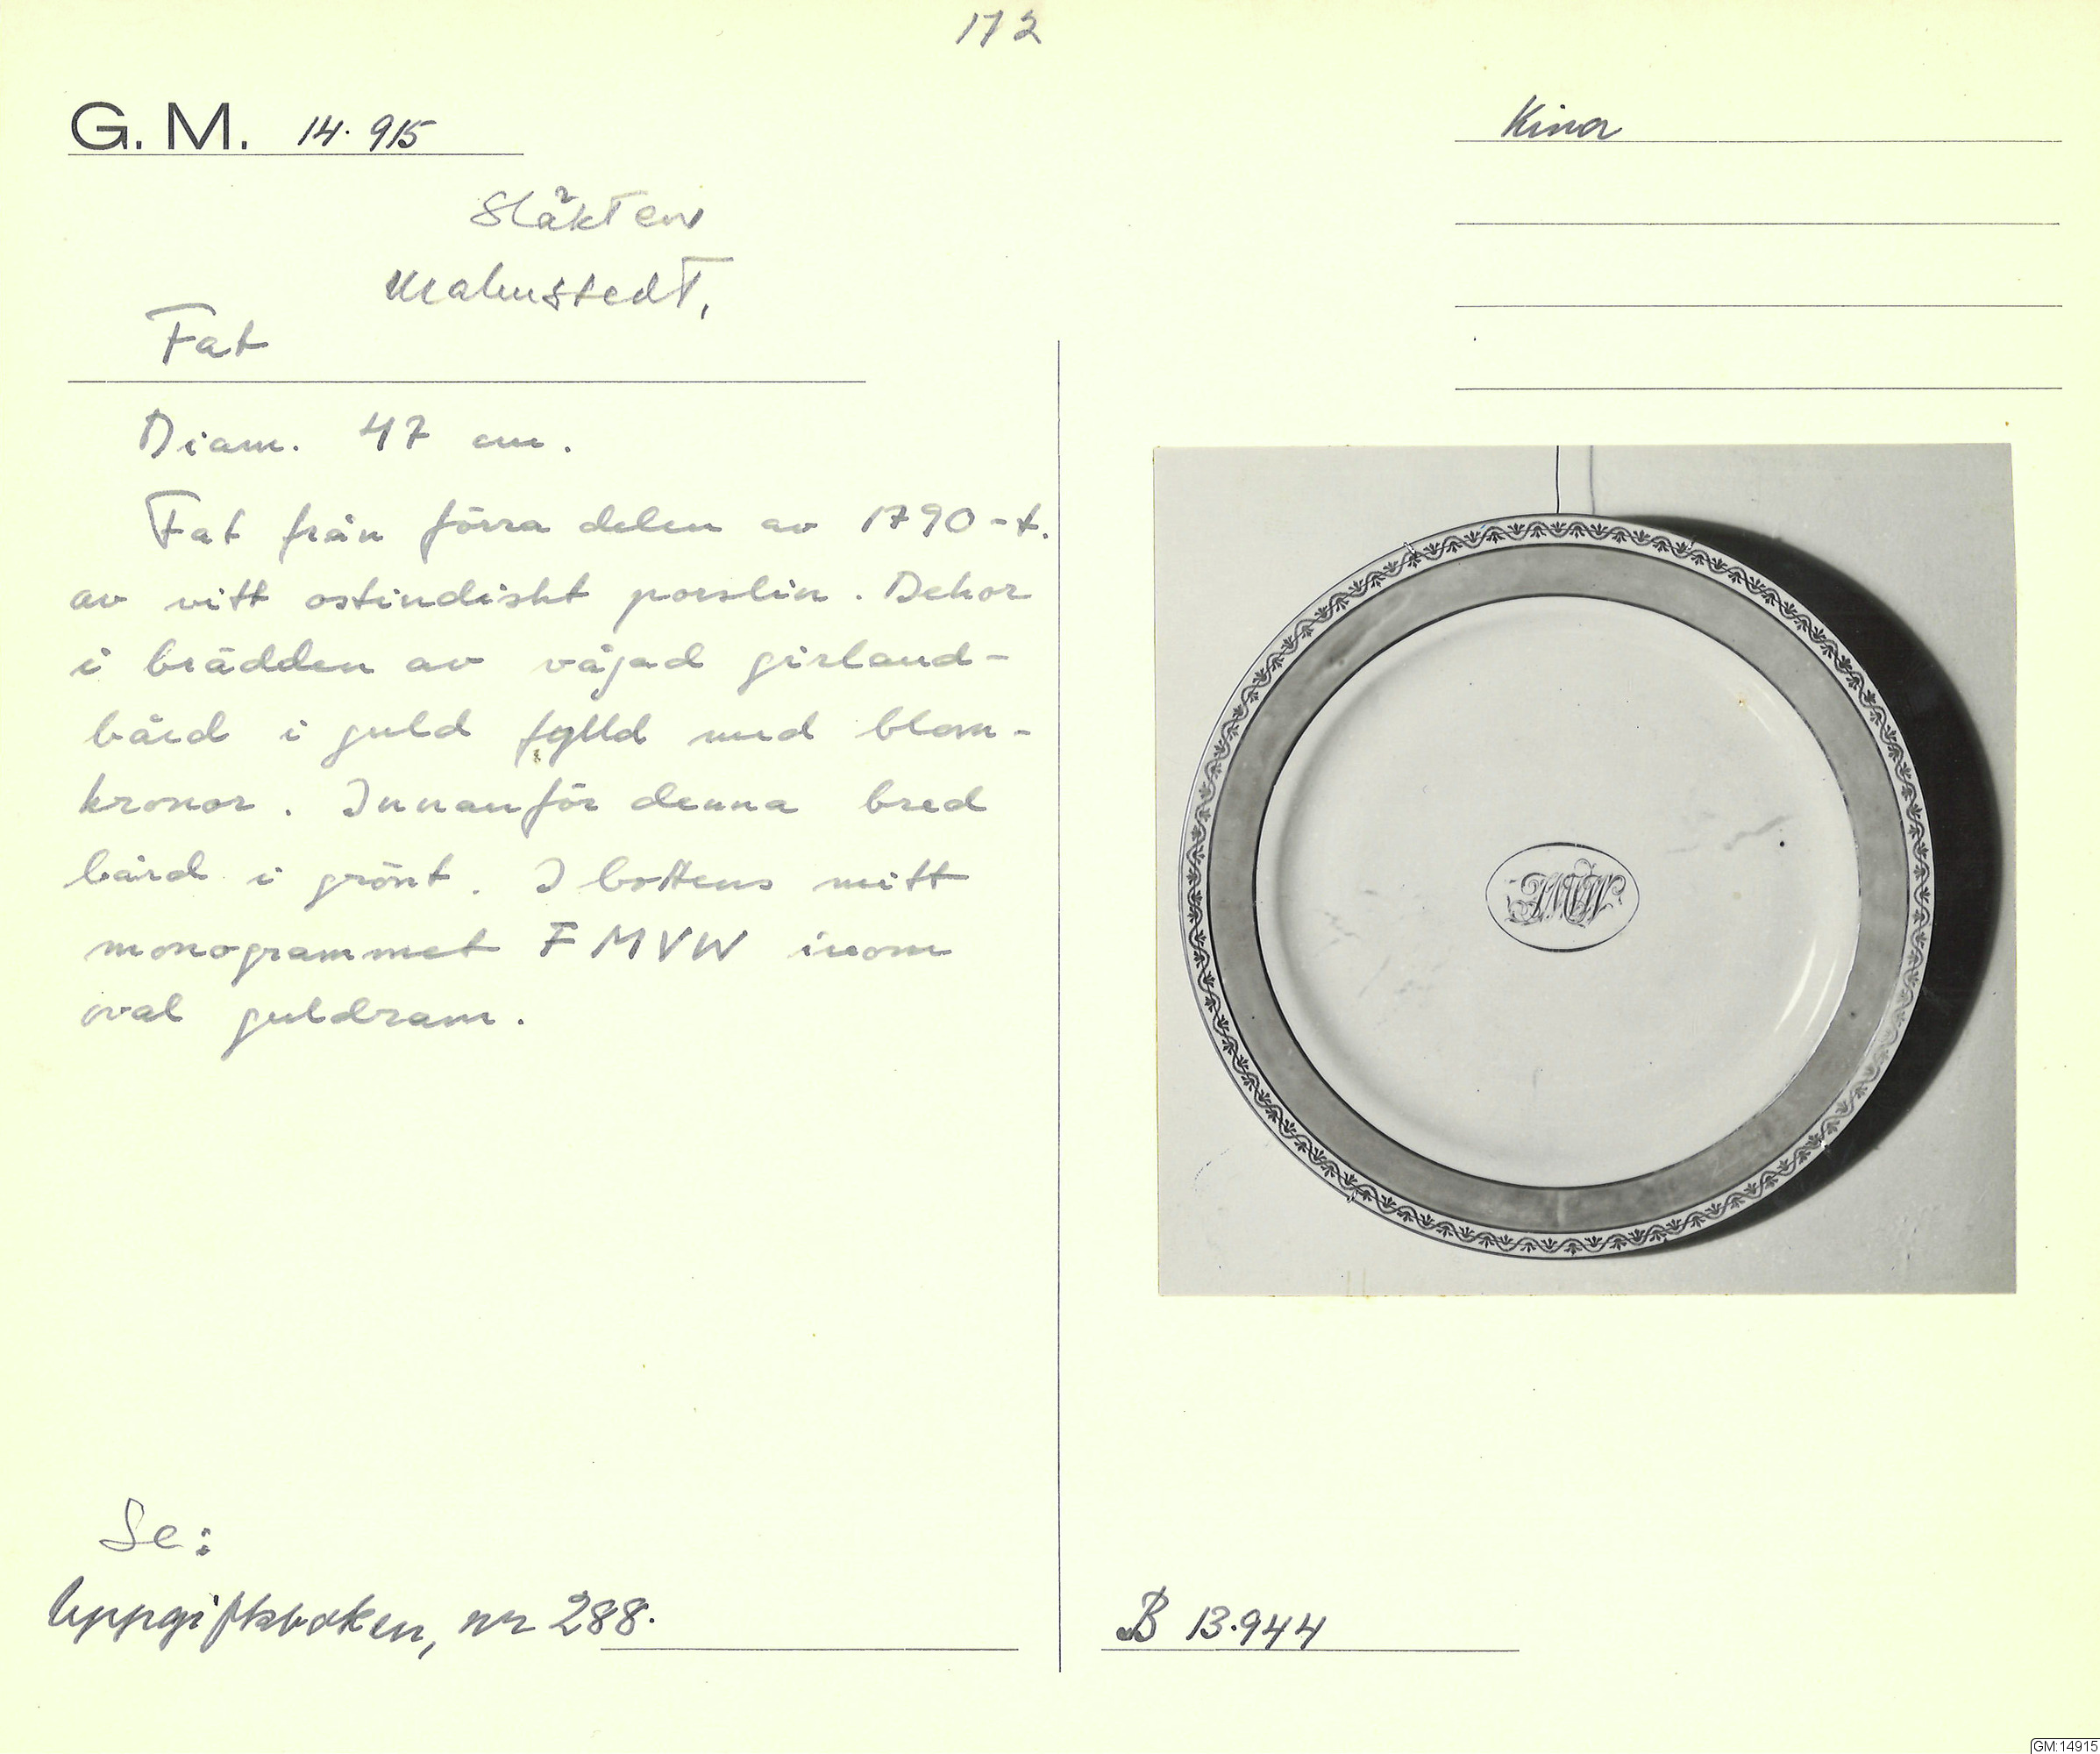 172
G. M. 14.915
Kina
Släkten
Malmstedt.
Fat
Diam. 47 cm.
Fat från förra delen av 1790-t.
av vitt ostindiskt porslin. Dekor
i brädden av vågad girland-
bård i guld fylld med blom-
kronor. Innanför denna bred
bård i grönt. I bottens mitt
monogrammet FMVW inom
oval guldram.
Se:
Uppgiftsboken, nr 288.
B 13.944
GM:14915